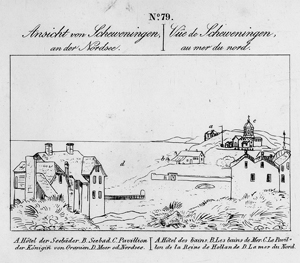 No. 79.
Ansicht von Scheweningen, Vüe de Scheweningen,
an der Nordsee. au mer du nord.
a
c
b
d
A. Hôtel der Seebäder. B. Seebad. C. Pavillion A. Hôtel des bains. B. Les bains de Mer. C. Le Pavil-
der Königin von Oranien. D. Meer od. Nordsee. lon de la Reine de Hollande. D. La mer du Nord.